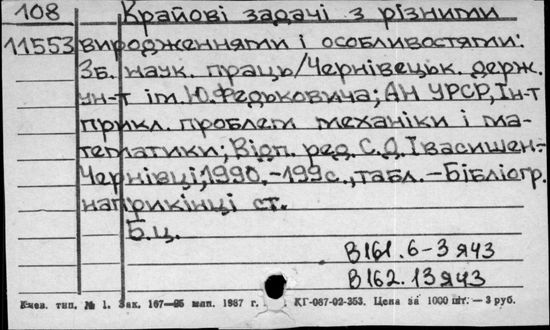 108 Крайові задачі з різними
11553 виродженнями і особливостями:
Зб. наук. праць/Чернівецьк. держ.
ун-т ім.Ю.Федьковича; АН УРСР, Ін-т
прикл. проблем механіки і ма-
тематики; Відп. ред. С.Д.Івасишен.-
Чернівці,1990.-199с.,табл.-Бібліогр.
наприкінці ст.
Б.ц.
В161.6-3я43
В162.13я43
Киев. тип. № 1. Зак. 167—85 мап. 1987 г. КГ-087-02-353. Цена за 1000 шт.— 3 руб.